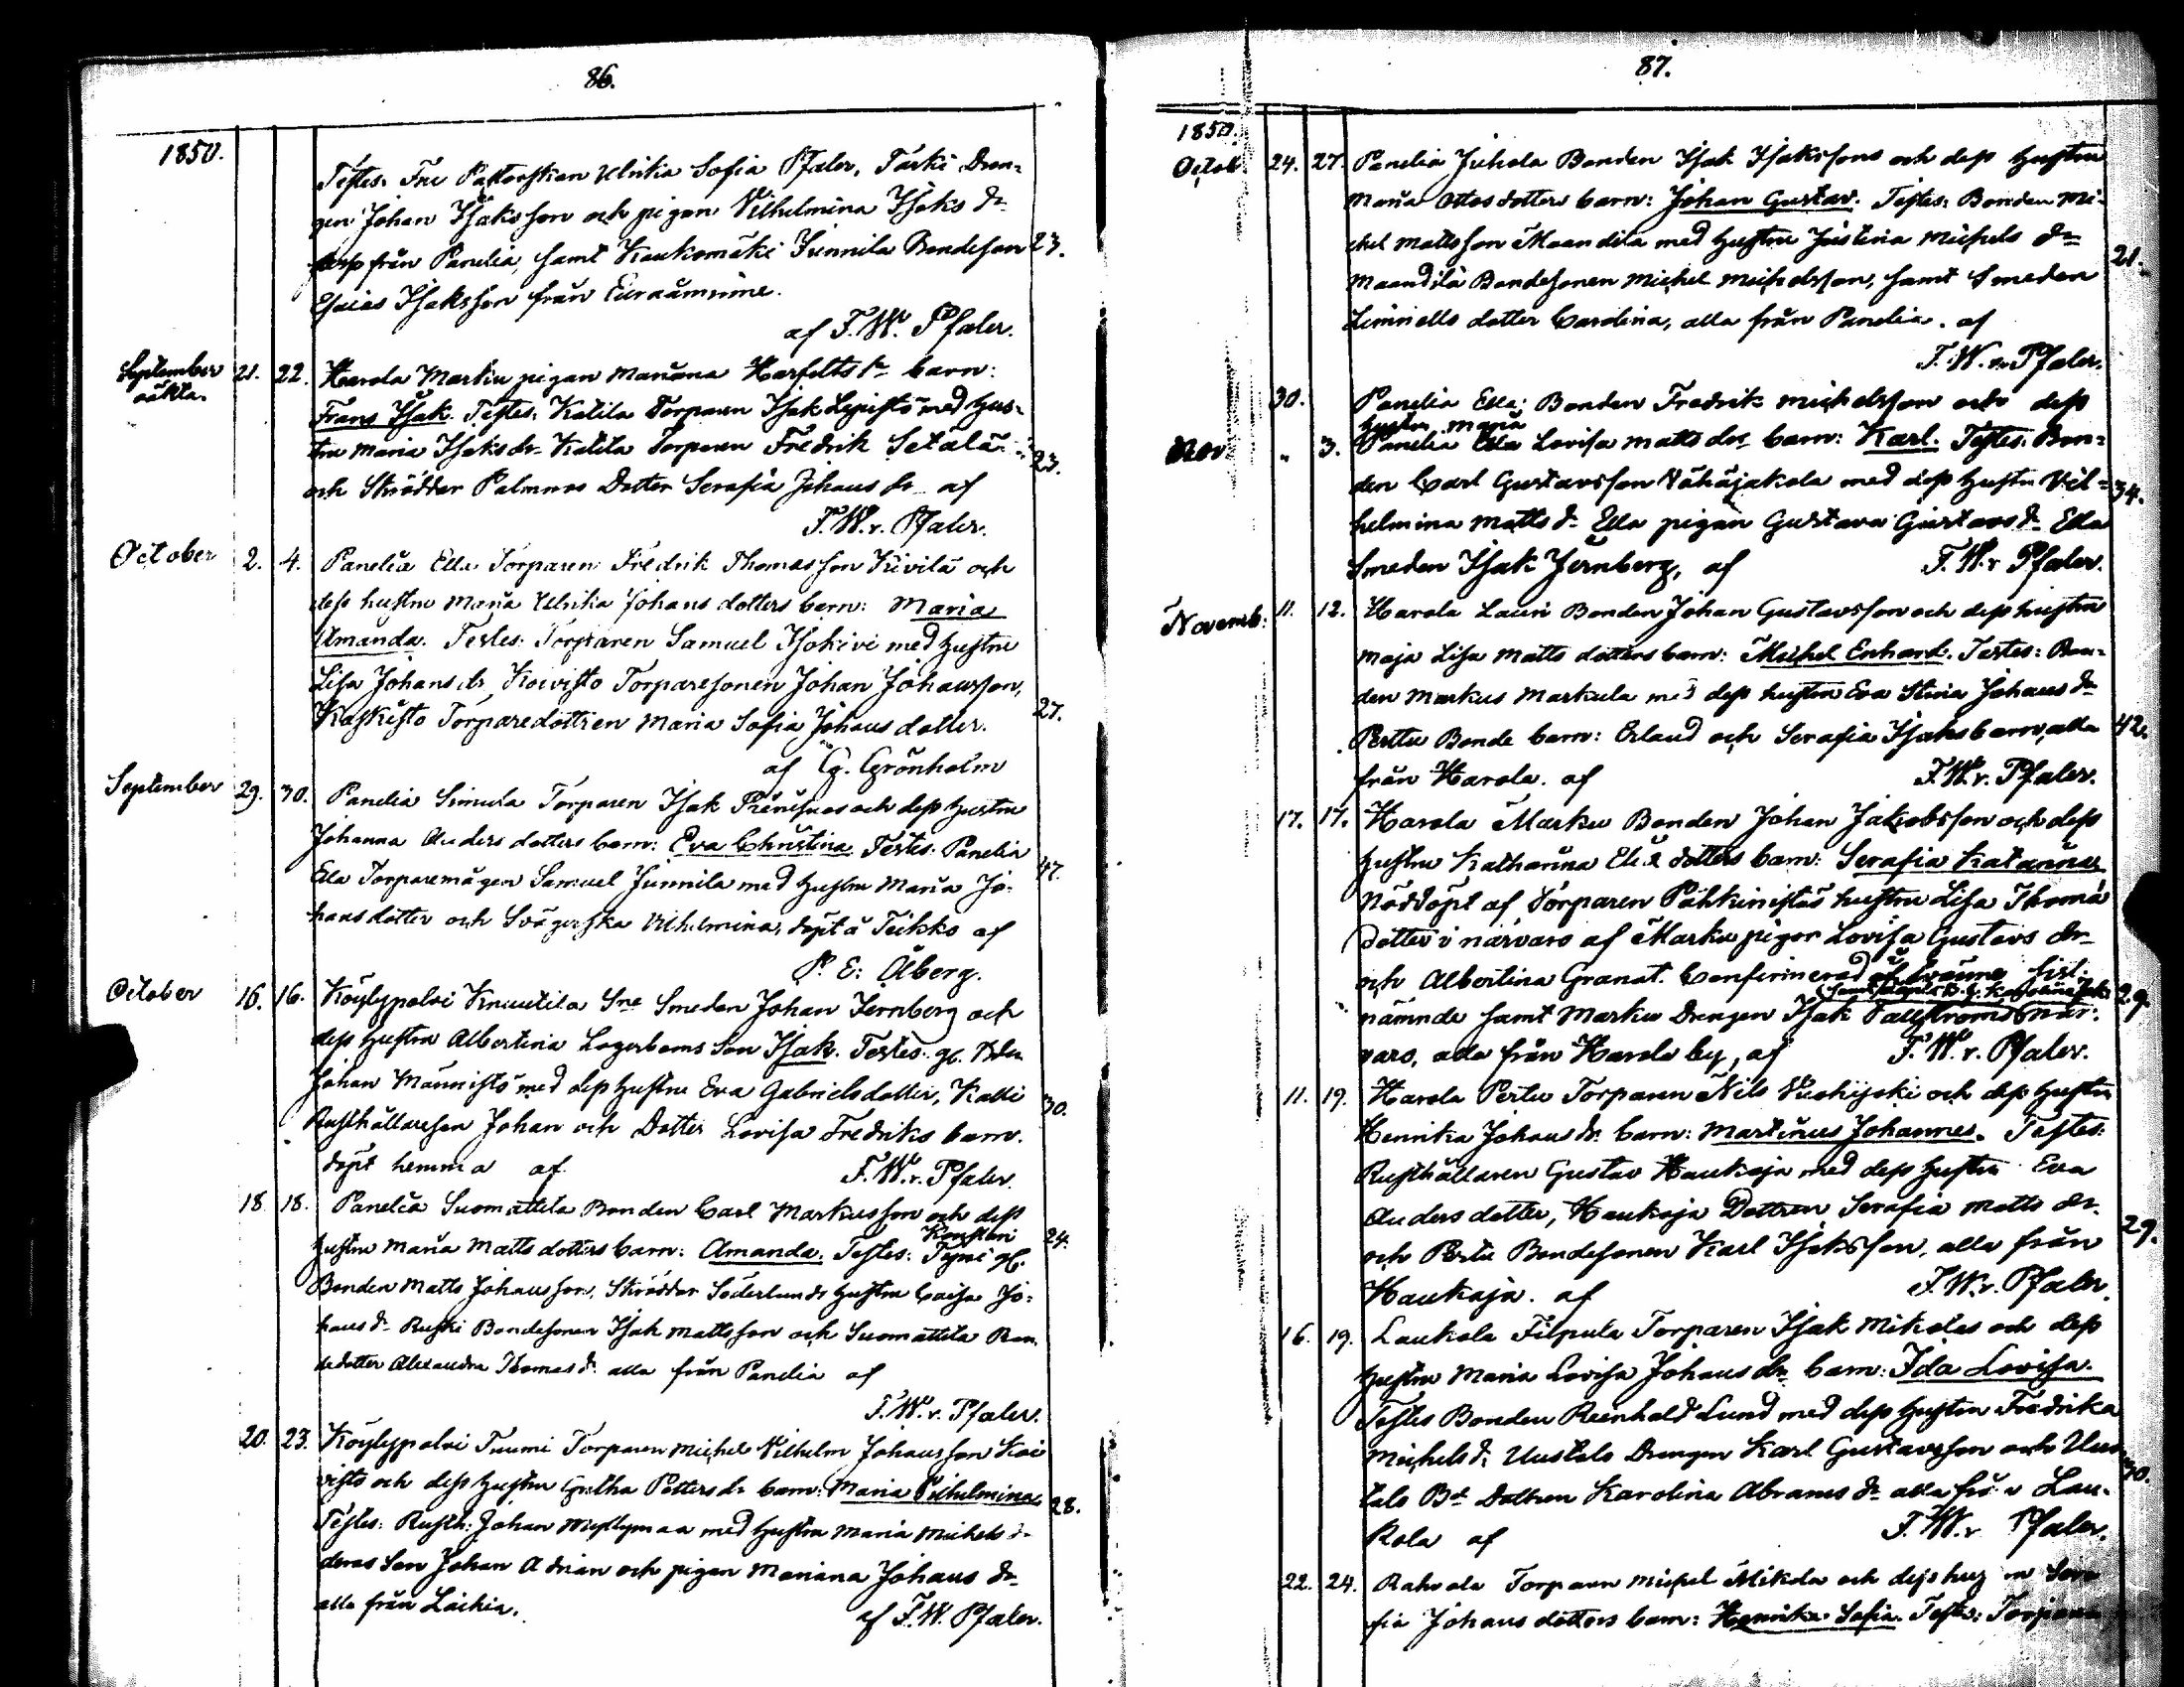 86.
1850.
Testes: Fru Pastorskan Ulrika Sofia Pfaler, Tarki Dren=
gen Johan Isaksson och pigan Vilhelmina Isaks dr
från Panelia, samt Kaukomäki Junnila Bondeson 23.
Esaias Isaksson från Euraåminne.
af F. W. Pfaler.
September 21. 22. Harola Marku pigan Mariana Harfelts barn:
oäkta.
Frans Isak. Testes: Katila Torparen Isak Lepistö med hus=
tru Maria Isaks dr Katila Torparen Fredrik Setälä 23.
och Skräddar Palmros Dotter Serafia Johans dr af
F. W. v. Pfaler.
October 2. 4. Panelia Ella Torparen Fredrik Thomasson Kivilä och
dess hustru Maria Ulrika Johans dotters barn: Maria
Amanda. Testes: Torparen Samuel Isokivi med hustru
Lisa Johans dr, Koivisto Torparesonen Johan Johansson,
Kaskisto Torparedottren Maria Sofia Johans dotter. 27.
af G. Grönholm
September 29. 30. Panelia Simula Torparen Isak och dess hustru
Johanna Anders dotters barn: Eva Christina. Testes: Panelia
Ella Torparemågen Samuel Junnila med hustru Maria Jo= 47.
hans dotter och Svägerska Vilhelmina, döpt å Teikko af
P. E. Åberg.
October 16. 16. Köylypolvi Knuutila Smeden Johan Jernberg och
dess hustru Albertina Lagerboms Son Isak. Testes: gl.
Johan Männistö med dess hustru Eva Gabrielsdotter, Katti 30.
Rusthållareson Johan och Dotter Lovisa Fredriks barn.
döpt hemma af F. W. v. Pfaler.
18. 18. Panelia Suomattila Bonden Carl Markusson och dess
hustru Maria Matts dotters barn: Amanda. Testes: Tyni gl. 24.
Bonden Matts Johansson, Skräddar Söderlunds hustru Caisa Jo=
hans dr Ruski Bondesonen Isak Mattsson och Suomattila Bon=
dedotter Alexandra Thomas dr alla från Panelia af
F. W. v. Pfaler.
20. 23. Köylypolvi Tuomi Torparen Michel Vilhelm Johansson Koi
visto och dess hustru Gretha Petters dr barn: Maria Vilhelmina 28.
Testes: Rusth: Johan Myllymaa med hustru Maria Michels dr
deras Son Johan Adrian och pigan Mariana Johans dr
alla från Läikiä. af F. W. Pfaler.
87.
1850.
Octob. 24. 27. Panelia Juhola Bonden Isak Isakssons och dess hustru
Maria Ottos dotters barn: Johan Gustav. Testes: Bonden Mi=
chel Mattsson Maandila med hustru Justina Michels dr
Maandila Bondesonen Michel Michelsson, samt Smeden 21.
dotter Carolina, alla från Panelia. af
F. W. v. Pfaler.
30. Panelia Ella: Bonden Fredrik Michelsson och dess
hustru Maria
Nov " 3. Panelia Ella Lovisa Matts dr barn: Karl. Testes: Bon=
den Carl Gustavsson Vähäjakola med dess hustru Vil= 34.
helmina Matts dr Ella pigan Gustava Gustavs dr Ella
Smeden Isak Jernberg, af F. W. v Pfaler.
Novemb: 11. 12. Harola Lauri Bonden Johan Gustavsson och dess hustru
Maja Lisa Matts dotters barn: Michel Enhard. Testes: Bon=
den Markus Markula med dess hustru Eva Stina Johans dr
Perttu Bonde barn: Erland och Serafia Isaks barn, alla 42.
från Harola. af F. W. v. Pfaler.
17. 17. Harola Marku Bonden Johan Jakobsson och dess
hustru Katharina Elias dotters barn: Serafia Katarina
Nöddöpt af Torparen Pähkinistös hustru Lisa Thomas
dotter i närvaro af Marku pigor Lovisa Gustavs dr
och Albertina Granat. Confirmerad
nämnde samt Marku Drengen Isak Fallströms när= 29.
varo, alla från Harola by, af F. W. v. Pfaler.
11. 19. Harola Perttu Torparen Nils och dess hustru
Henrika Johans dr barn: Martinus Johannes. Testes:
Rusthållaren Gustav Haukoja med dess hustru Eva
Anders dotter, Haukoja Dottren Serafia Matts dr
och Perttu Bondesonen Karl Isaksson, alla från 29.
Haukoja. af F. W. v. Pfaler.
16. 19. Laukola Filpula Torparen Isak Mikolas och dess
hustru Maria Lovisa Johans dr barn: Ida Lovisa.
Testes Bonden Reinhold Lund med dess hustru Fredrika
Michels dr Uustalo Drengen Karl Gustavsson och Uus
talo Bd Dottren Karolina Abrams dr alla från Lau= 30.
kola af F. W. v Pfaler.
22. 24. Rahvola Torparen Michel Mikola och dess hustru Sera
fia Johans dotters barn: Henrika Sofia. Testes: Torparen